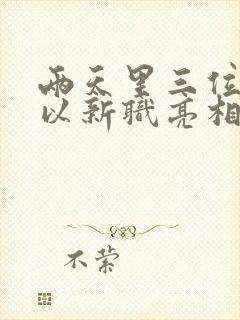 两天里三位
以新职亮相
不萦